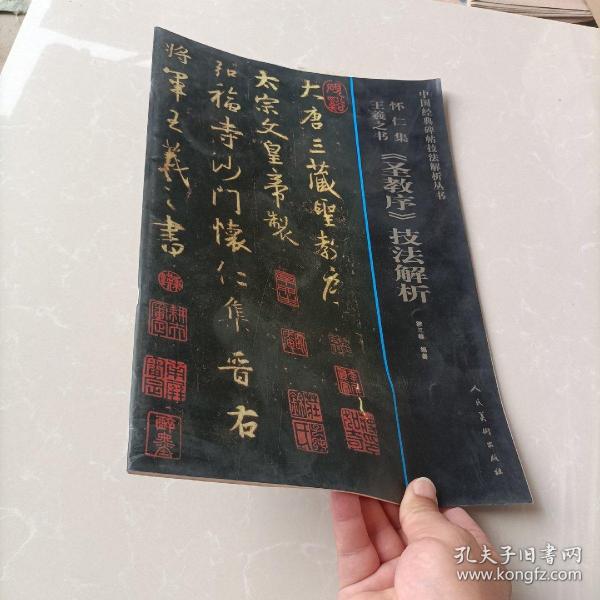 中国经典碑帖技法解析丛书
怀仁集
王羲之书
《圣教序》技法解析
编著
人民美术出版社
大唐三藏聖教序
太宗文皇帝製
弘福寺沙門懷仁集晉右
將軍王羲之書
孔夫子旧书网
www.kongfz.com